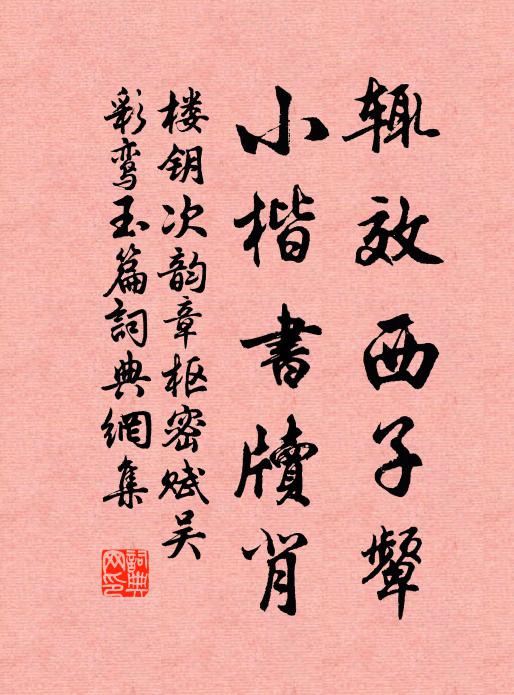 辄效西子颦
小楷書牍背
楼钥次韵章枢密赋吴
彩鸾玉篇詞典網集
詞典網印